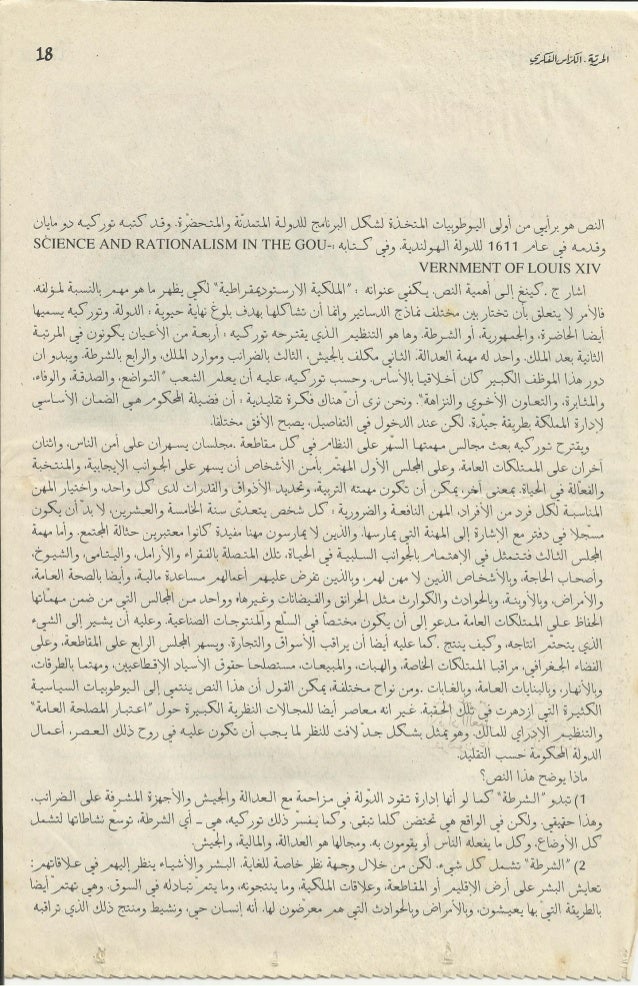 18
الحرية. الكراس الفكري
النص هو برأيي من أولى اليوطوبيات المتخذة لشكل البرنامج للدولة المتمدنّة والمتحضرة. وقد كتبه توركيه دو مايان
وقدمه في عام 1611 للدولة الهولندية. وفي كتابه :-SCIENCE AND RATIONALISM IN THE GOU
VERNMENT OF LOUIS XIV
اشار ج. كينغ إلى أهمية النص. يكفي عنوانه : "الملكية الارستوديمقراطية" لكي يظهر ما هو مهم بالنسبة لمؤلفه.
فالأمر لا يتعلق بأن تختار بين مختلف نماذج الدساتير وانما أن تشاكلها بهدف بلوغ نهاية حيوية : الدولة. وتوركيه يسميها
أيضا الحاضرة، والجمهورية، أو الشرطة. وها هو التنظيم الذي يقترحه توركيه : أربعة من الأعيان يكونون في المرتبة
الثانية بعد الملك. واحد له مهمة العدالة. الثاني مكلف بالجيش، الثالث بالضرائب وموارد الملك، والرابع بالشرطة. ويبدو ان
دور هذا الموظف الكبير كان أخلاقيا بالأساس. وحسب توركيه، عليه أن يعلم الشعب "التواضع، والصدقة، والوفاء،
والمثابرة، والتعاون الأخوي والنزاهة". ونحن نرى أن هناك فكرة تقليدية : أن فضيلة المحكوم هي الضمان الأساسي
لادارة المملكة بطريقة جيّدة. لكن عند الدخول في التفاصيل، يصبح الأفق مختلفا.
ويقترح توركيه بعث مجالس مهمتها السهر على النظام في كل مقاطعة. مجلسان يسهران على أمن الناس، واثنان
آخران على الممتلكات العامة، وعلى المجلس الأول المهتم بأمن الأشخاص أن يسهر على الجوانب الايجابية، والمنتخبة
والفعّالة في الحياة. بمعنى آخر، يمكن أن تكون مهمته التربية، وتحديد الأذواق والقدرات لدى كل واحد، واختيار المهن
المناسبة لكل فرد من الأفراد. المهن النافعة والضرورية : كل شخص يتعدى سنة الخامسة والعشرين، لا بد أن يكون
مسجلا في دفتر مع الاشارة إلى المهنة التي يمارسها. والذين لا يمارسون مهنا مفيدة كانوا معتبرين حثالة المجتمع. وأما مهمة
المجلس الثالث فتتمثل في الاهتمام بالجوانب السلبية في الحياة، تلك المتصلة بالفقراء والأرامل، واليتامى، والشيوخ،
وأصحاب الحاجة، وبالأشخاص الذين لا مهن لهم، وبالذين تفرض عليهم أعمالهم مساعدة مالية، وأيضا بالصحة العامة،
والأمراض، وبالأوبئة، وبالحوادث والكوارث مثل الحرائق والفيضانات وغيرها، وواحد من المجالس التي من ضمن مهمّاتها
الحفاظ على الممتلكات العامة مدعو إلى أن يكون مختصاً في السلع والمنتوجات الصناعية. وعليه أن يشير إلى الشيء
الذي يتحتم انتاجه، وكيف ينتج. كما عليه أيضا أن يراقب الأسواق والتجارة. ويسهر المجلس الرابع على المقاطعة، وعلى
الفضاء الجغرافي، مراقبا الممتلكات الخاصة، والهبات، والمبيعات، مستصلحا حقوق الأسياد الاقطاعيين، ومهتما بالطرقات،
وبالأنهار، وبالبنايات العامة، وبالغابات. ومن نواح مختلفة، يمكن القول أن هذا النص ينتمي إلى اليوطوبيات السياسية
الكثيرة التي ازدهرت في تلك الحقبة، غير انه معاصر أيضا للمجالات النظرية الكبيرة حول "اعتبار المصلحة العامة"
والتنظيم الاداري للممالك. وهو يمثل بشكل جد لافت للنظر لما يجب أن تكون عليه في روح ذلك العصر، أعمال
الدولة المحكومة حسب التقليد.
ماذا يوضح هذا النص؟
1) تبدو "الشرطة" كما لو أنها إدارة تقود الدولة في مزاحمة مع العدالة والجيش والأجهزة المشرفة على الضرائب.
وهذا حقيقي. ولكن في الواقع هي تحتضن كلما تبقى. وكما يفسر ذلك توركيه، هي - أي الشرطة، توسّع نشاطاتها لتشمل
كل الأوضاع، وكل ما يفعله الناس أو يقومون به. ومجالها هو العدالة، والمالية، والجيش.
2) "الشرطة" تشمل كل شيء. لكن من خلال وجهة نظر خاصة للغاية. البشر والأشياء ينظر إليهم في علاقاتهم:
تعايش البشر على أرض الاقليم أو المقاطعة، وعلاقات الملكية، وما ينتجونه، وما يتم تبادله في السوق. وهي تهتم أيضا
بالطريقة التي بها يعيشون، وبالأمراض وبالحوادث التي هم معرّضون لها. أنه إنسان حي، ونشيط ومنتج ذلك الذي تراقبه